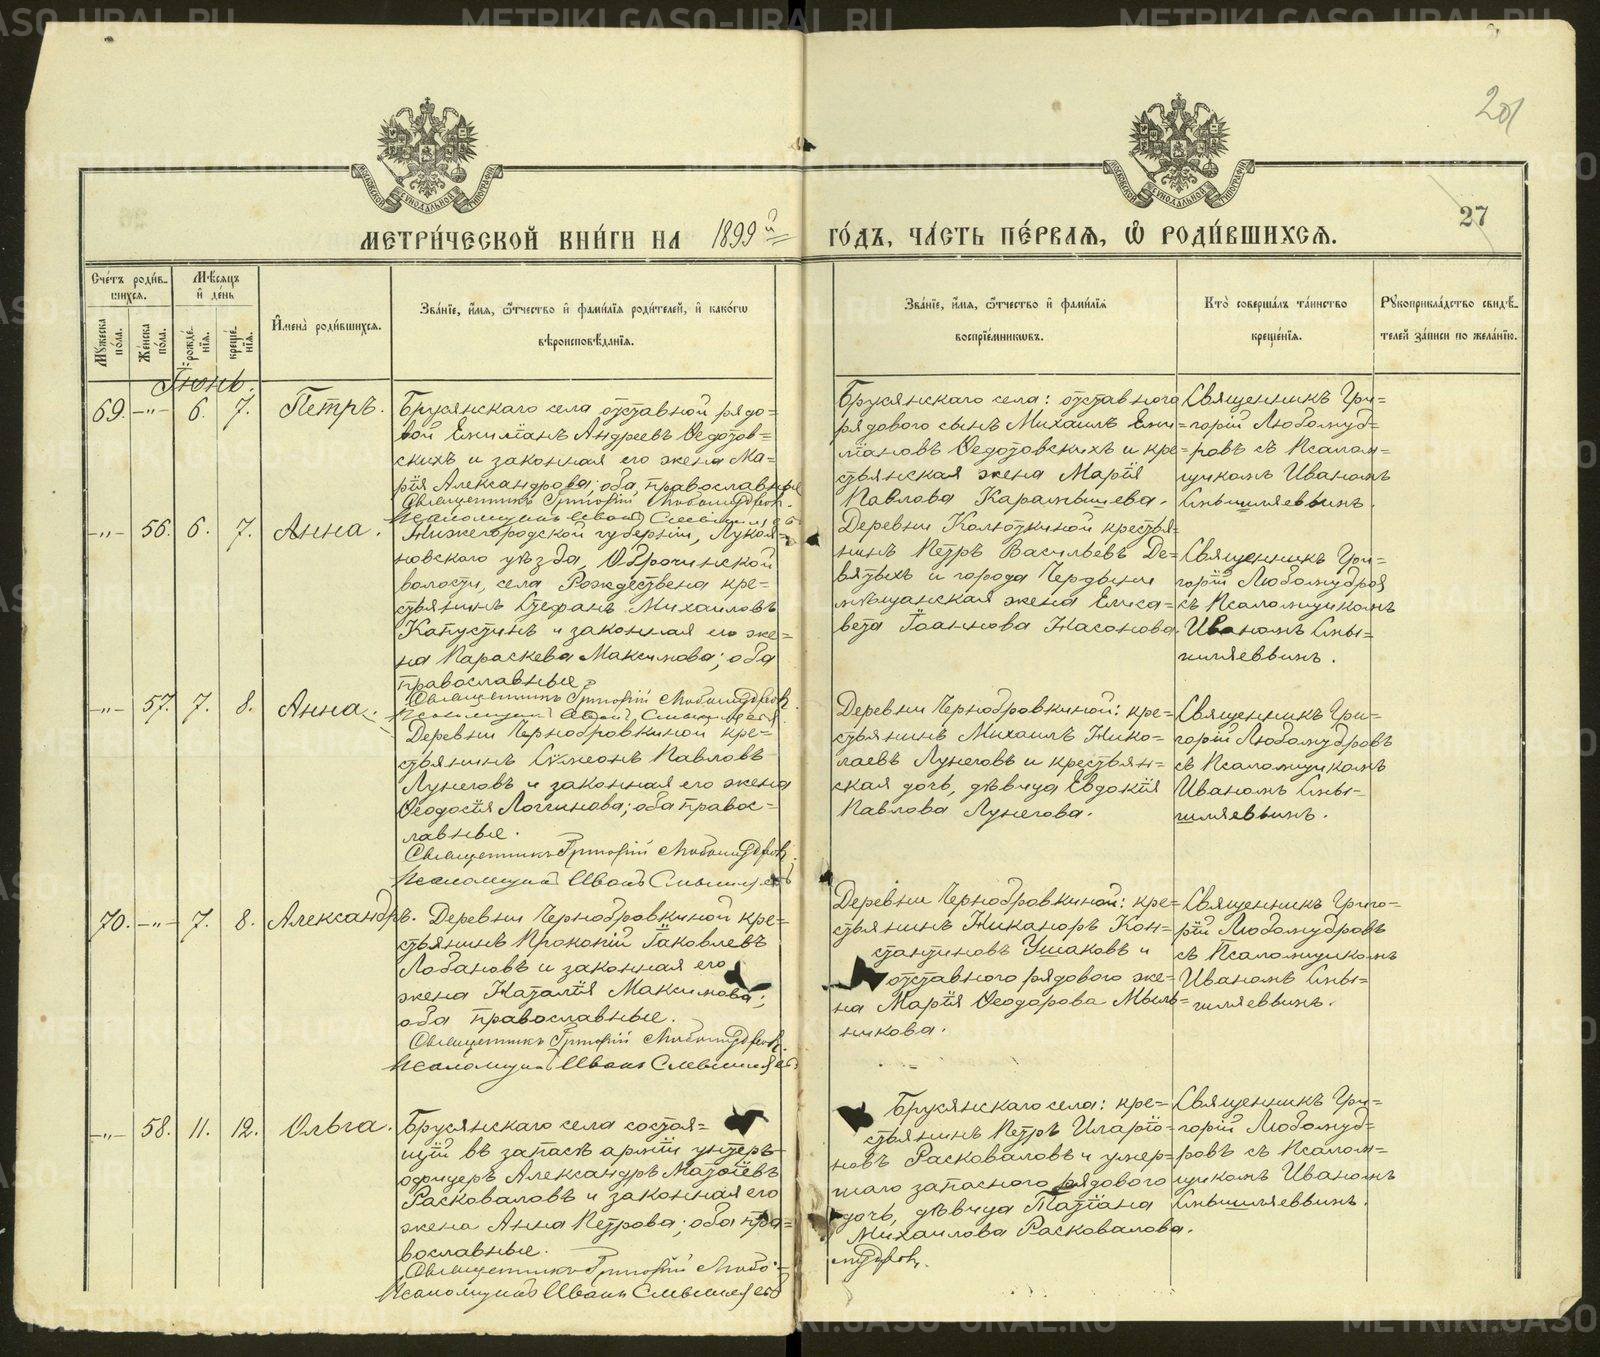 201
27
МЕТРИ́ЧЕСКОЙ КНИ́ГИ НА 1899й ГО́ДЪ, ЧА́СТЬ ПЕ́РВАѦ, Ѡ РОДИ́ВШИХСѦ.
Сче́тъ роди́вшихся.
Мꙋ́жеска по́ла.
Же́нска по́ла.
Мѣ́сяцъ и҆ де́нь
рожде́нїя.
креще́нїя.
И҆мена̀ роди́вшихся.
Зва́нїе, и҆́мя, ѻ҆́тчество и҆ фами́лїя роди́телей, и҆ како́гѡ
вѣроисповѣ́данїя.
Зва́нїе, и҆́мя, ѻ҆́тчество и҆ фами́лїя
воспрїе́мникѡвъ.
Кто̀ соверша́лъ та́инство
креще́нїя.
Рꙋкоприкла́дство свидѣ́телей за́писи по жела́нїю.
Іюнь.
69. -„- 6. 7. Петръ.
Брусянскаго села отставной рядо=
вой Емилїанъ Андреевъ Ѳедотов=
скихъ и законная его жена Ма=
рїя Александрова; оба православные
Священникъ Григорій Любомудровъ.
Псаломщикъ Иванъ
Брусянскаго села: отставного
рядового сынъ Михаилъ Еми=
лїановъ Ѳедотовскихъ и кре=
стьянская жена Марїя
Павлова Карамышева.
Священникъ Гри=
горїй Любомуд=
ровъ съ Псалом=
щикомъ Иваномъ
Смышляевымъ.
-„- 56. 6. 7. Анна.
Нижегородской губернїи, Лукоя=
новскаго уѣзда, Оброчинской
волости, села Рождествена кре=
стьянинъ Стефанъ Михаиловъ
Капустинъ и законная его же=
на Параскева Максимова; оба
православные.
Священникъ Григорій Любомудровъ.
Псаломщикъ Иванъ Смышляевъ.
Деревни Колюткиной крестья=
нинъ Петръ Васильевъ Де=
вятыхъ и города Чердыни
мѣщанская жена Елиса=
вета Їоаннова Насонова.
Священникъ Гри=
горїй Любомудров
съ Псаломщикомъ
Иваномъ Смы=
шляевымъ.
-„- 57. 7. 8. Анна.
Деревни Чернобровкиной кре=
стьянинъ Симеонъ Павловъ
Лунеговъ и законная его жена
Ѳеодосїя Логгинова; оба правос=
лавные.
Священникъ Григорій Любомудровъ.
Псаломщикъ Иванъ Смышляевъ
Деревни Чернобровкиной: кре=
стьянинъ Михаилъ Нико=
лаевъ Лунеговъ и крестьян=
ская дочь, дѣвица Евдокїя
Павлова Лунегова.
Священникъ Гри=
горїй Любомудровъ
съ Псаломщикомъ
Иваномъ Смы=
шляевымъ.
70. -„- 7. 8. Александръ.
Деревни Чернобровкиной кре=
стьянинъ Прокопїй Їаковлевъ
Лобановъ и законная его
жена Наталїя Максимова;
оба православные.
Священникъ Григорій Любомудровъ.
Псаломщикъ Иванъ Смышляевъ
Деревни Чернобровкиной: кре=
стьянинъ Никаноръ Кон=
стантиновъ Ушаковъ и
отставного рядового же=
на Марїя Ѳеодорова Мыль=
никова.
Священникъ Григо=
рїй Любомудровъ
съ Псаломщикомъ
Иваномъ Смы=
шляевымъ.
-„- 58. 11. 12. Ольга.
Брусянскаго села состоя=
щїй въ запасѣ армїи унтеръ
офицеръ Александръ Матѳїевъ
Расковаловъ и законная его
жена Анна Петрова; оба пра=
вославные.
Священникъ Григорій Любо=
мудровъ.
Псаломщикъ Иванъ Смышляевъ
Брусянскаго села: кре=
стьянинъ Петръ Иларїо=
новъ Расковаловъ и умер=
шаго запаснаго рядового
дочь, дѣвица Татїана
Михаилова Расковалова.
Священникъ Гри=
горїй Любомуд=
ровъ съ Псалом=
щикомъ Иваномъ
Смышляевымъ.
METRIKI.GASO-URAL.RU